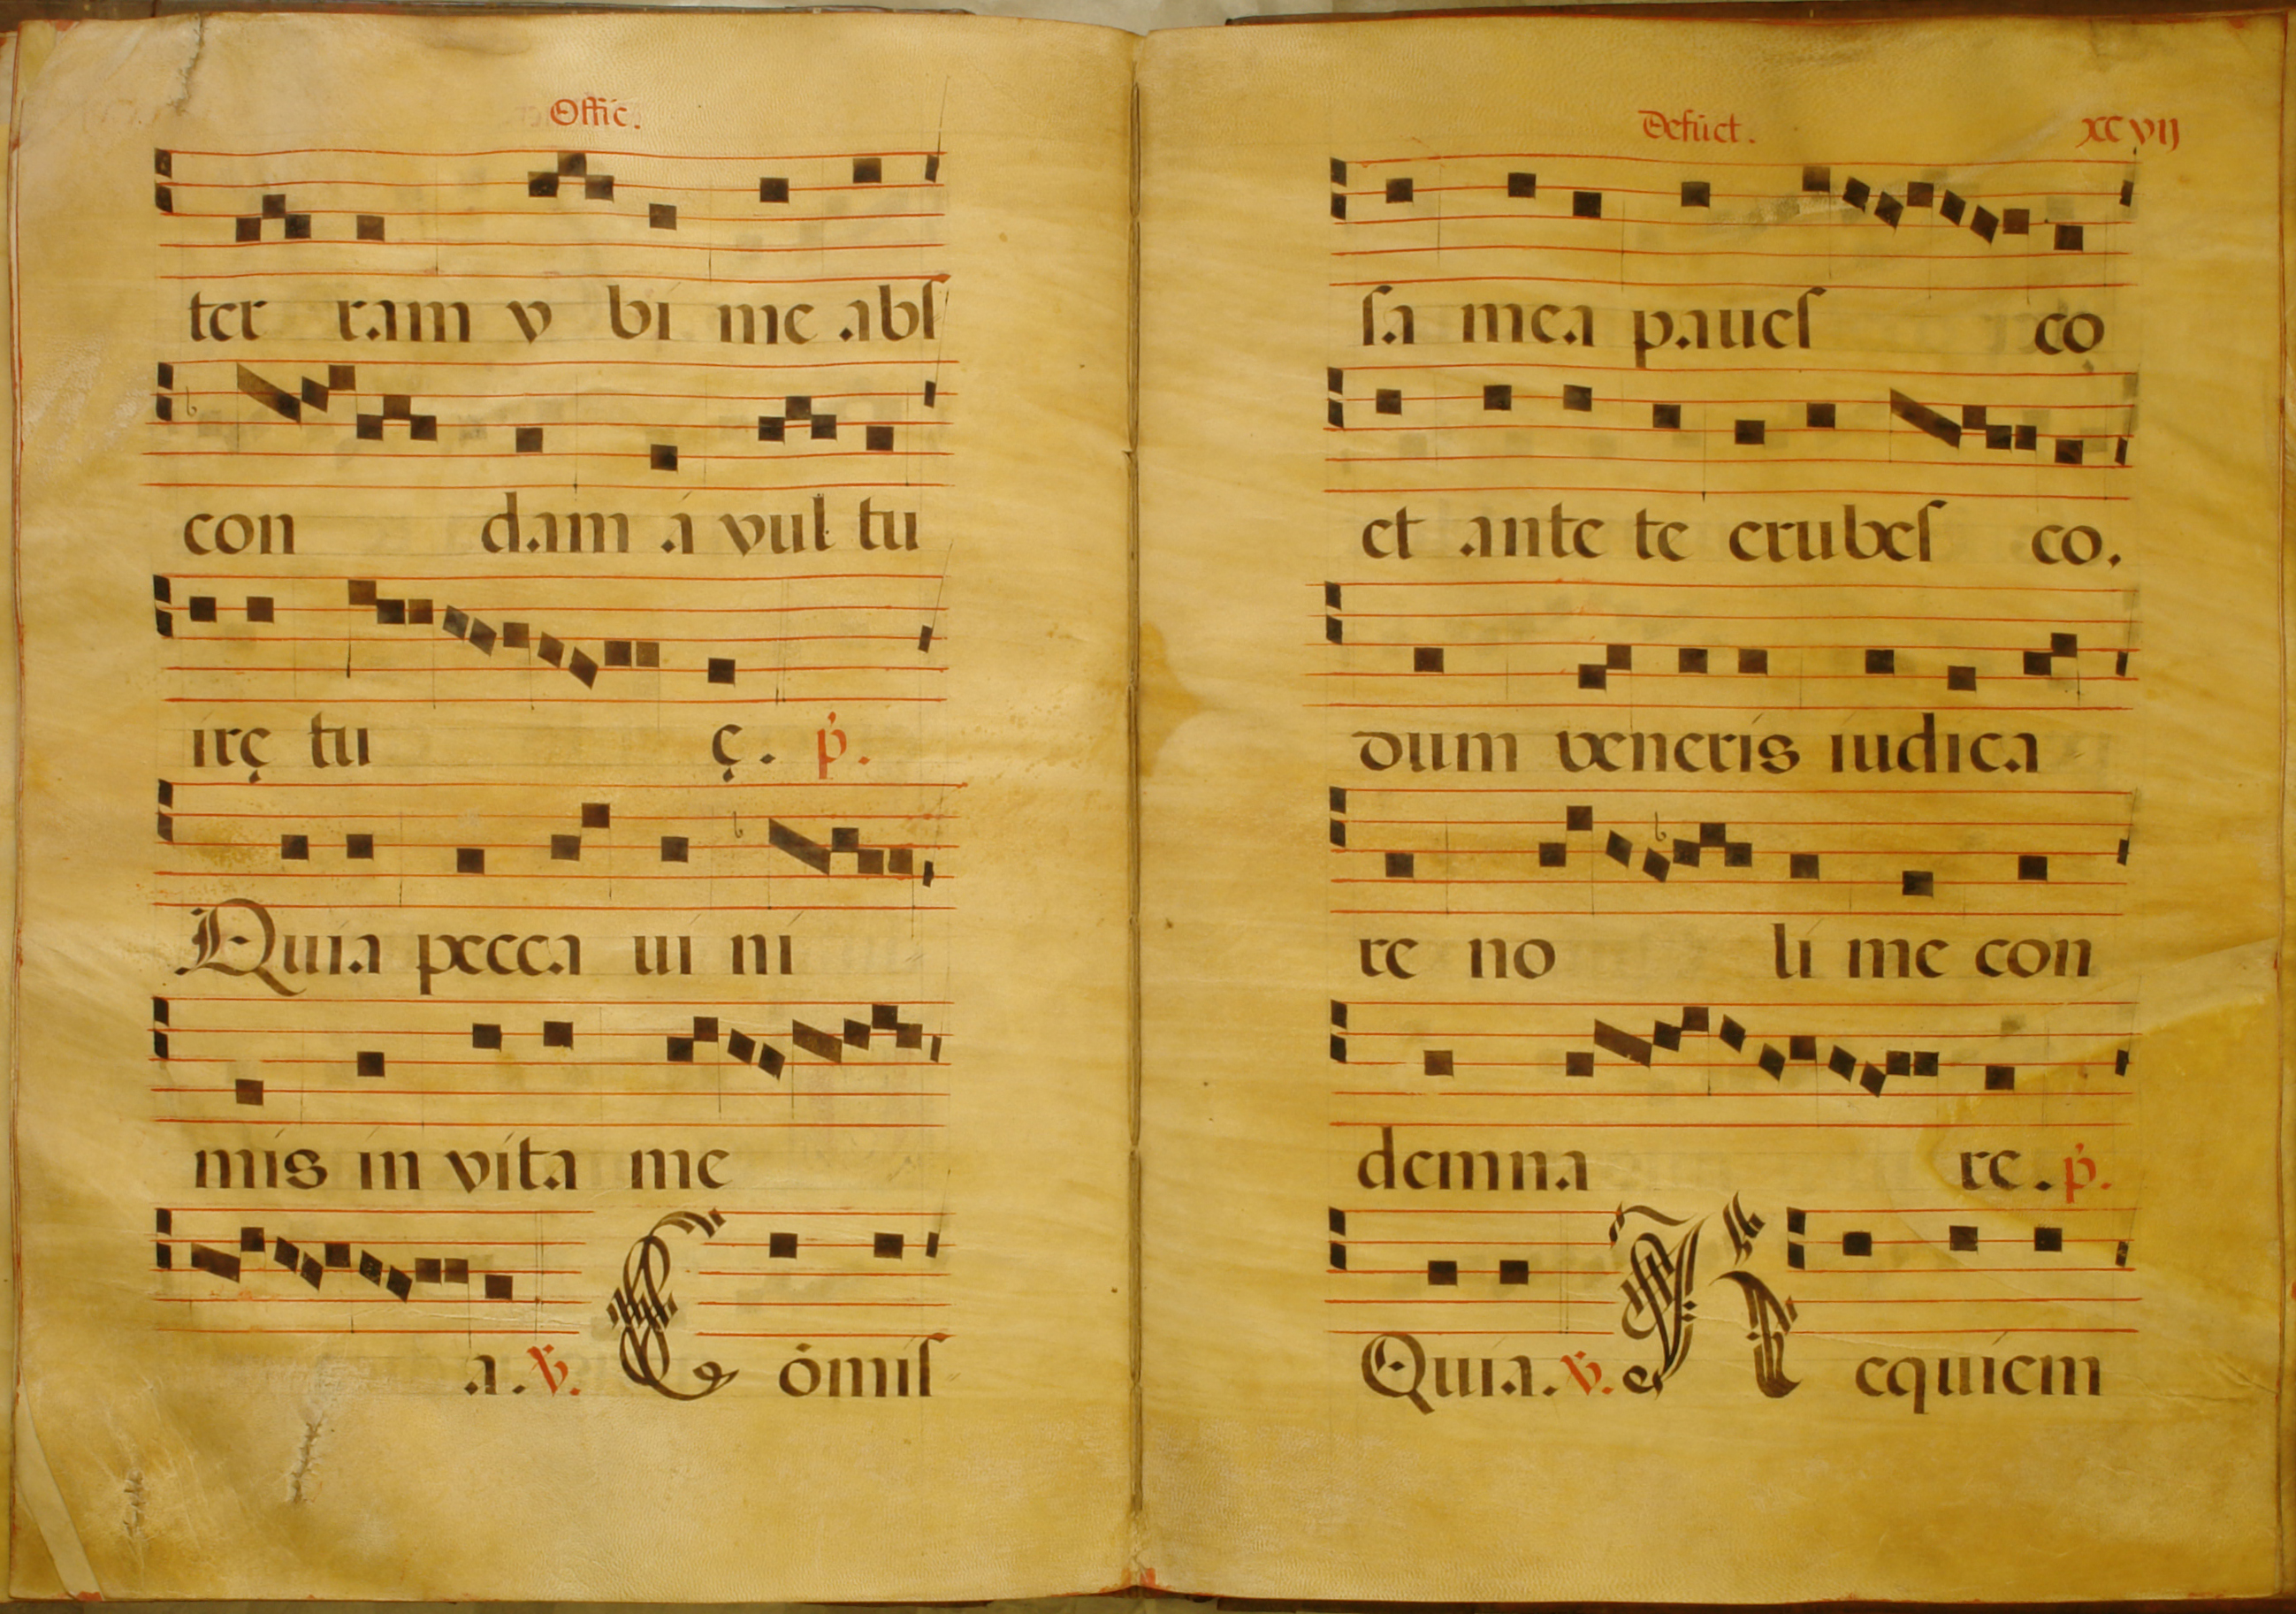 Offic.
ter ram v bi me abſ
con dam á vul tu
irę tu ę. p.
Quia pecca ui ni
mis in vita me
a. ℣. C ómiſ
Defūct. XCVIJ
ſa mea paueſ co
et ante te erubeſ co.
dum veneris iudica
re no li me con
demna re. p.
Quia. ℣. R equiem